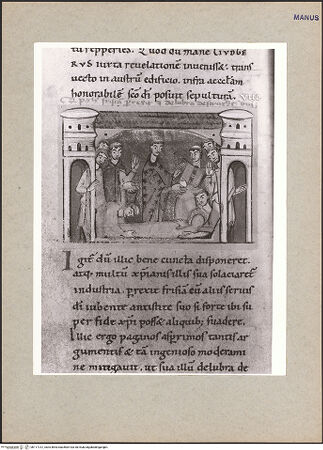 MANUS
tu repperies. Quod dū mane LIVDGE
RVS iuxta revelationē invenisset. trans
vecto in austrū edificio. infra accclam
honorabilē sco di posuit sepulturā.
Igit dū illic bene cuncta disponeret.
atq; multū xpianis illis sua solaciaret
industria. prexit frisiā cū aliis servis
di iubente antistite suo si forte ibi su
per fide xpi posset aliquib; suadere.
Illic ergo paganos asprimos tantis ar
gumentis & tā ingenioso moderami
ne mitigavit. ut sua illū delubra de